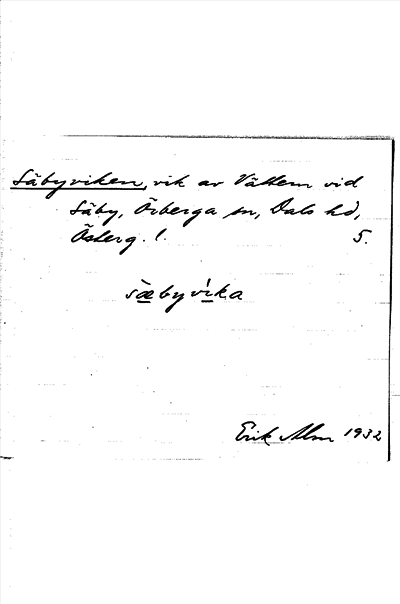 Säbyviken, vik av Vättern vid
Säby, Örberga sn, Dals hd,
Österg. l. 5.
sàbyvíka
Erik Alm 1932